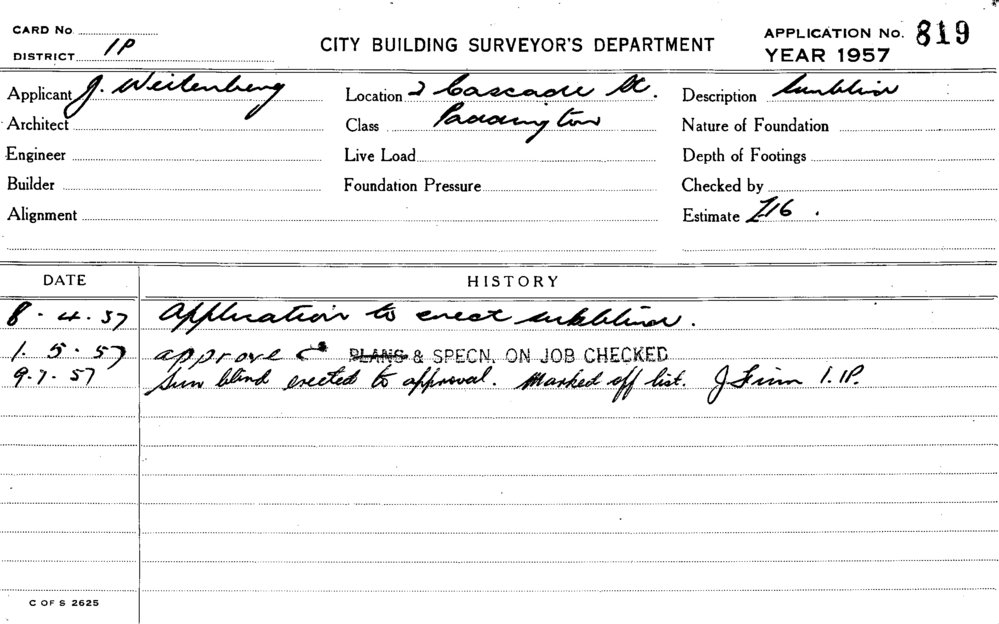 CARD No.
DISTRICT 1P
CITY BUILDING SURVEYOR'S DEPARTMENT
APPLICATION No. 819
YEAR 1957
Applicant J. Weitenberg Location 2 Cascade St. Description Sunblind
Architect Class Paddington Nature of Foundation
Engineer Live Load Depth of Footings
Builder Foundation Pressure Checked by
Alignment Estimate £16.
DATE HISTORY
8.4.57 Application to erect sunblind.
1.5.57 approve PLANS & SPECN. ON JOB CHECKED
9.7.57 Sun blind erected to approval. Marked off list. J Finn 1.1P.
C OF S 2625